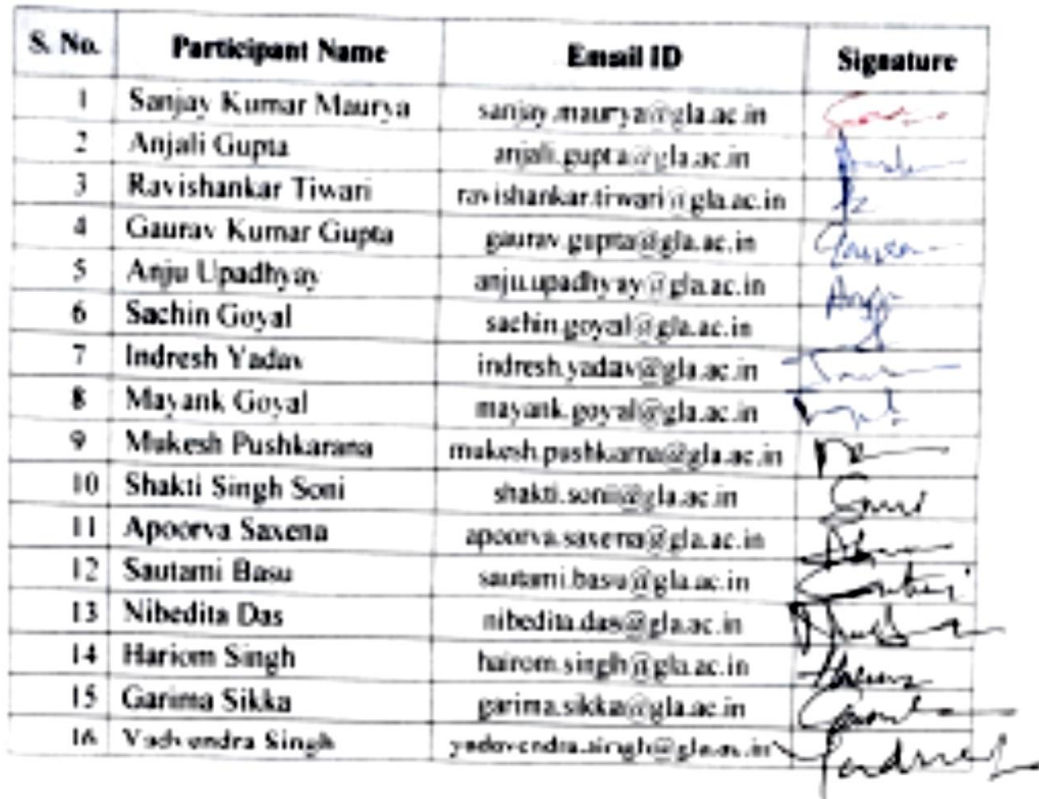 S. No. Participant Name Email ID Signature
1 Sanjay Kumar Maurya sanjay.maurya@gla.ac.in
2 Anjali Gupta anjali.gupta@gla.ac.in
3 Ravishankar Tiwari ravishankar.tiwari@gla.ac.in
4 Gaurav Kumar Gupta gaurav.gupta@gla.ac.in
5 Anju Upadhyay anju.upadhyay@gla.ac.in
6 Sachin Goyal sachin.goyal@gla.ac.in
7 Indresh Yadav indresh.yadav@gla.ac.in
8 Mayank Goyal mayank.goyal@gla.ac.in
9 Mukesh Pushkarana mukesh.pushkarna@gla.ac.in
10 Shakti Singh Soni shakti.soni@gla.ac.in
11 Apoorva Saxena apoorva.saxena@gla.ac.in
12 Sautami Basu sautami.basu@gla.ac.in
13 Nibedita Das nibedita.das@gla.ac.in
14 Hariom Singh hairom.singh@gla.ac.in
15 Garima Sikka garima.sikka@gla.ac.in
16 Yadvendra Singh yadavendra.singh@gla.ac.in